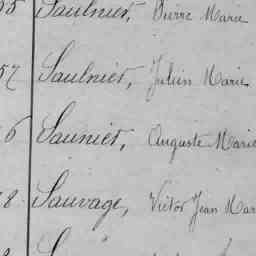 5 Saulnier, Pierre Marie
57 Saulnier, Julien Marie
6 Saunier, Auguste Marie
8 Sauvage, Victor Jean Mar